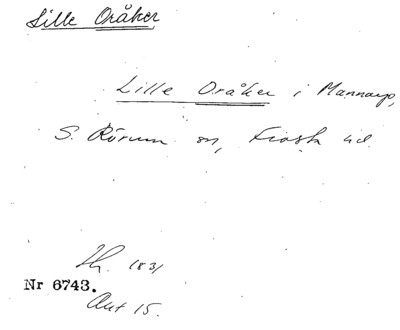 Lille Oråker
Lille Oråker i Mannarp,
S. Rörum sn, Frosta hd
1831
Nr 6743.
Akt 15.